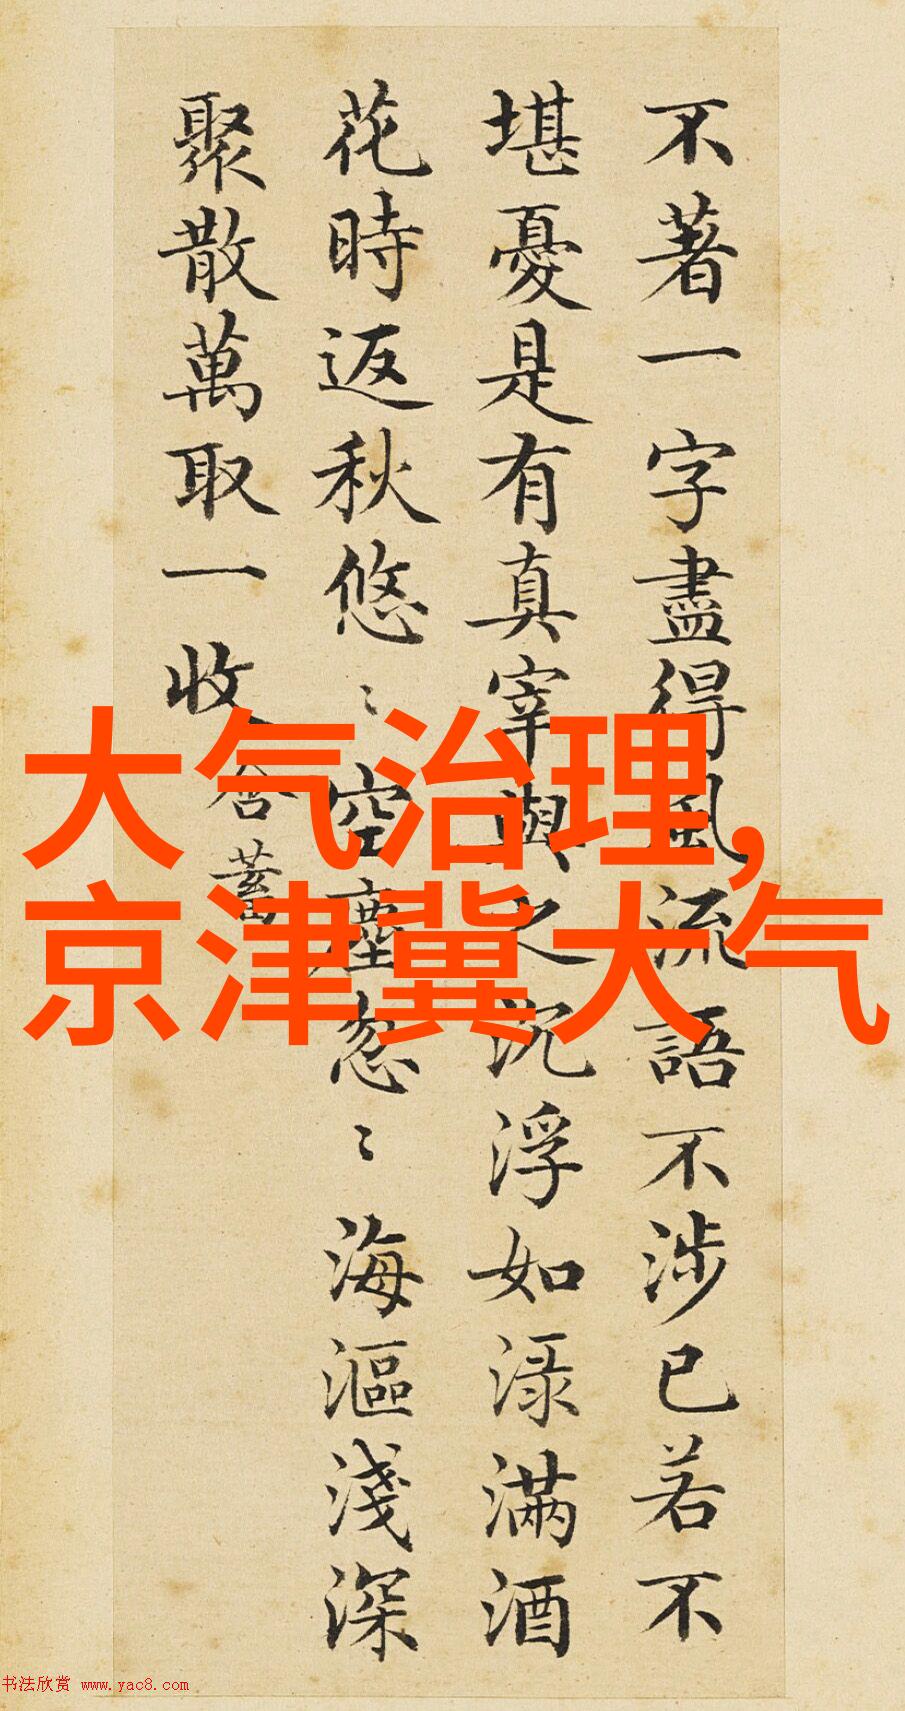 不著一字盡得風流語不涉已若不
堪憂是有真宰與之沉浮如渌滿酒
花時返秋悠〻空塵忽〻海漚淺深
聚散萬取一收
含蓄
大气治理,
京津冀大气
书法欣赏 www.yac8.com